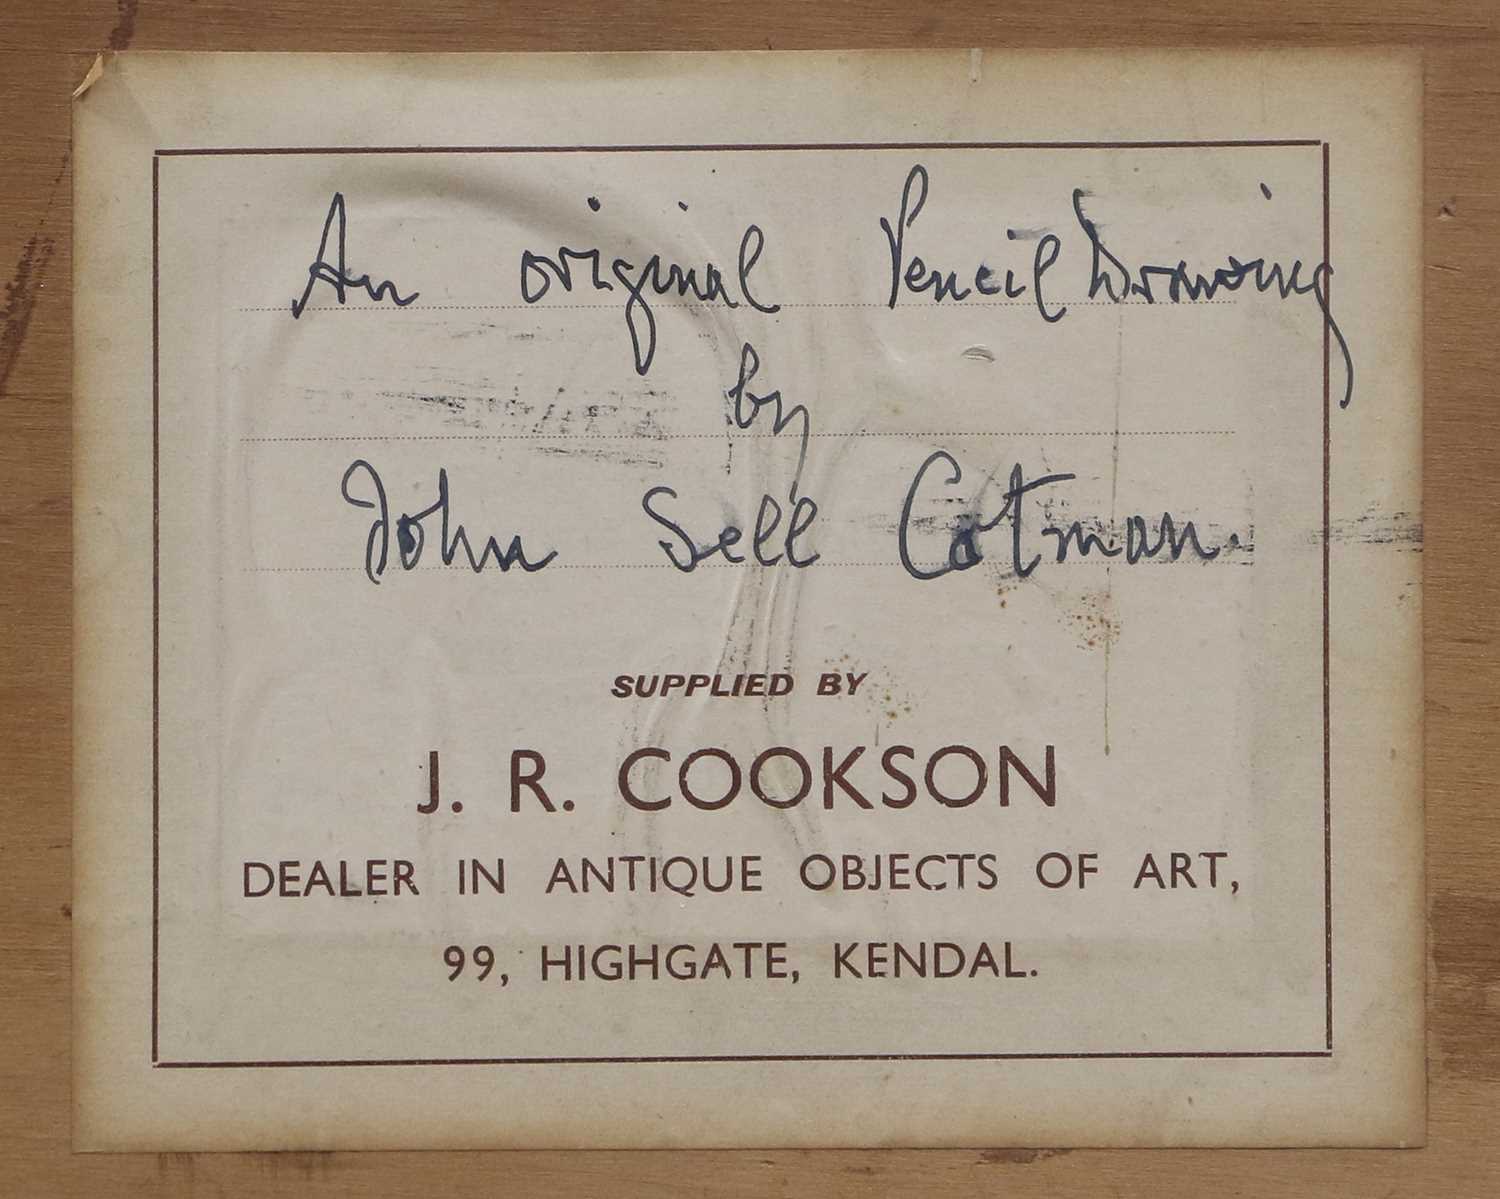 An original Pencil Drawing
by
John Sell Cotman.
SUPPLIED BY
J. R. COOKSON
DEALER IN ANTIQUE OBJECTS OF ART,
99, HIGHGATE, KENDAL.